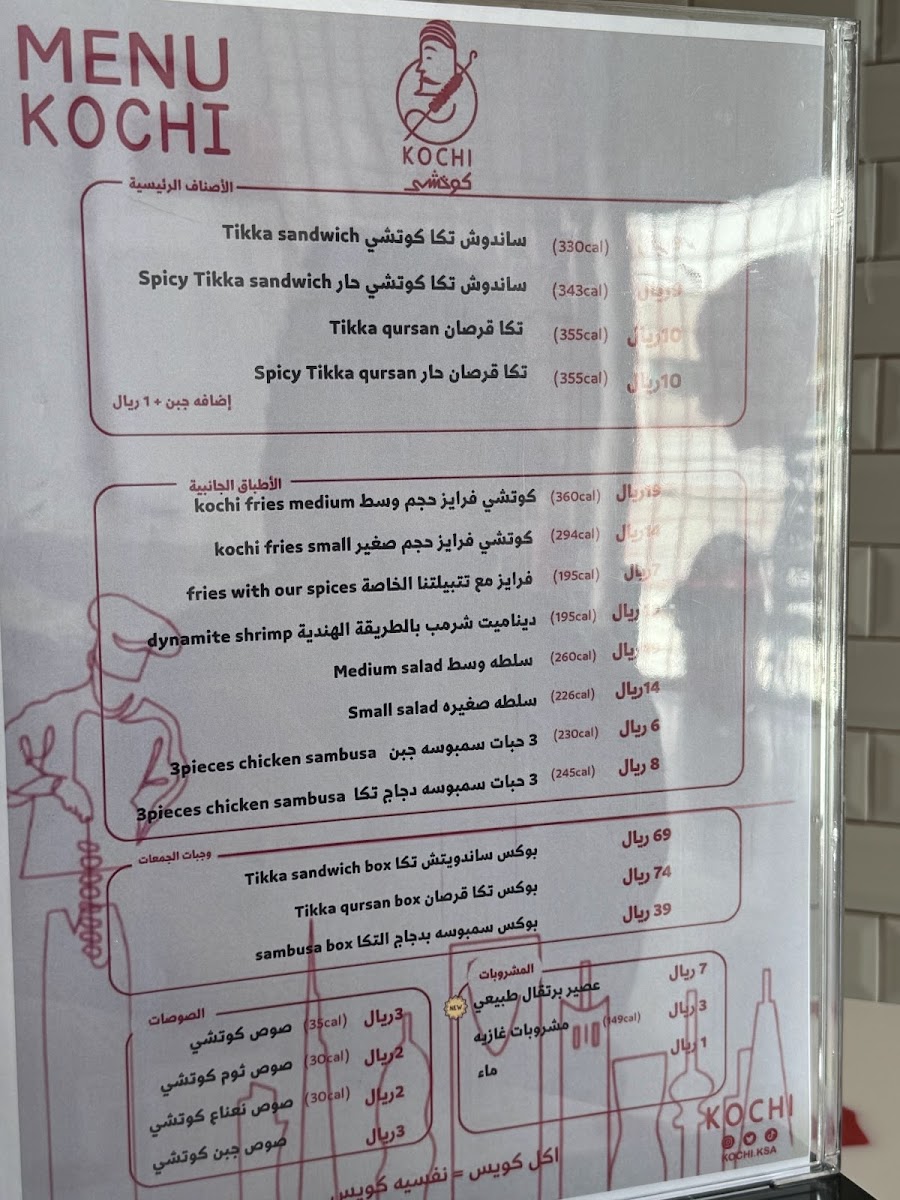 MENU
KOCHI
KOCHI
كوتشي
الأصناف الرئيسية
ساندوش تكا كوتشي Tikka sandwich (330cal)
ساندوش تكا كوتشي حار Spicy Tikka sandwich (343cal) 9ريال
تكا قرصان Tikka qursan (355cal) 10ريال
تكا قرصان حار Spicy Tikka qursan (355cal) 10ريال
إضافه جبن + 1 ريال
الأطباق الجانبية
كوتشي فرايز حجم وسط kochi fries medium (360cal) ريال
كوتشي فرايز حجم صغير kochi fries small (294cal) ريال
فرايز مع تتبيلتنا الخاصة fries with our spices (195cal) 7ريال
ديناميت شرمب بالطريقة الهندية dynamite shrimp (195cal) ريال
سلطه وسط Medium salad (260cal) ريال
سلطه صغيره Small salad (226cal) 14ريال
3 حبات سمبوسه جبن 3pieces chicken sambusa (230cal) 6 ريال
3 حبات سمبوسه دجاج تكا 3pieces chicken sambusa (245cal) 8 ريال
وجبات الجمعات
بوكس ساندويتش تكا Tikka sandwich box 69 ريال
بوكس تكا قرصان Tikka qursan box 74 ريال
بوكس سمبوسه بدجاج التكا sambusa box 39 ريال
الصوصات
صوص كوتشي (35cal) 3ريال
صوص ثوم كوتشي (30cal) 2ريال
صوص نعناع كوتشي (30cal) 2ريال
صوص جبن كوتشي 3ريال
المشروبات
NEW عصير برتقال طبيعي 7 ريال
مشروبات غازيه (149cal) 3 ريال
ماء 1 ريال
اكل كويس = نفسيه كويس
KOCHI
KOCHI.KSA